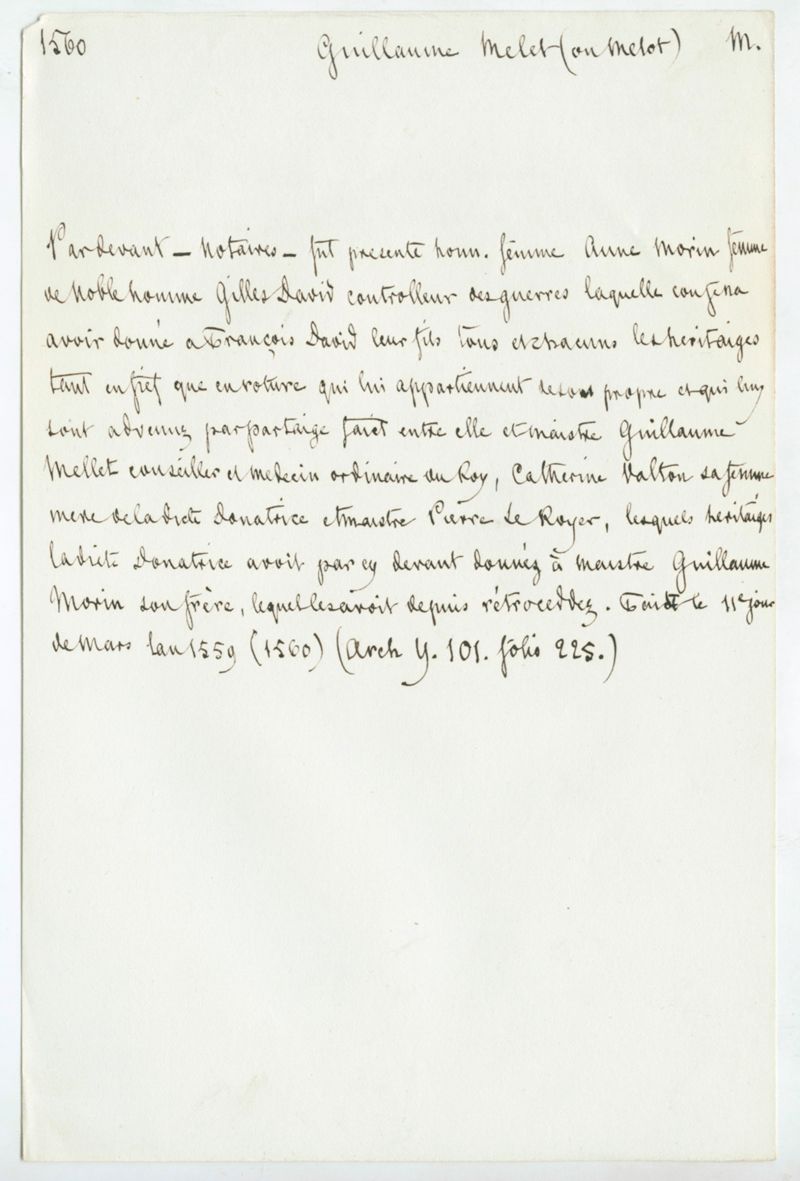 1560 Guillaume Melet (ou Melot) M.
Par devant — Notaires — fut presente honn. femme Anne Morin femme
de Noble homme Gilles David controlleur des guerres laquelle confessa
avoir donné a François David leur fils tous et chacuns les heritaiges
tant en fief que en roture qui lui appartiennent de son propre et qui luy
sont advenuz par partaige faict entre elle et maistre Guillaume
Mellet conseiller et medecin ordinaire du Roy, Catherine Valton sa femme
mere de la dicte Donatrice et maistre Pierre Le Royer, lesquels heritaiges
la dicte Donatrice avoit par cy devant donnéz à maistre Guillaume
Morin son frère, lequel les avoit depuis rétroceddez. Faict le 11e jour
de Mars lan 1559 (1560) (Arch Y. 101. folio 225.)